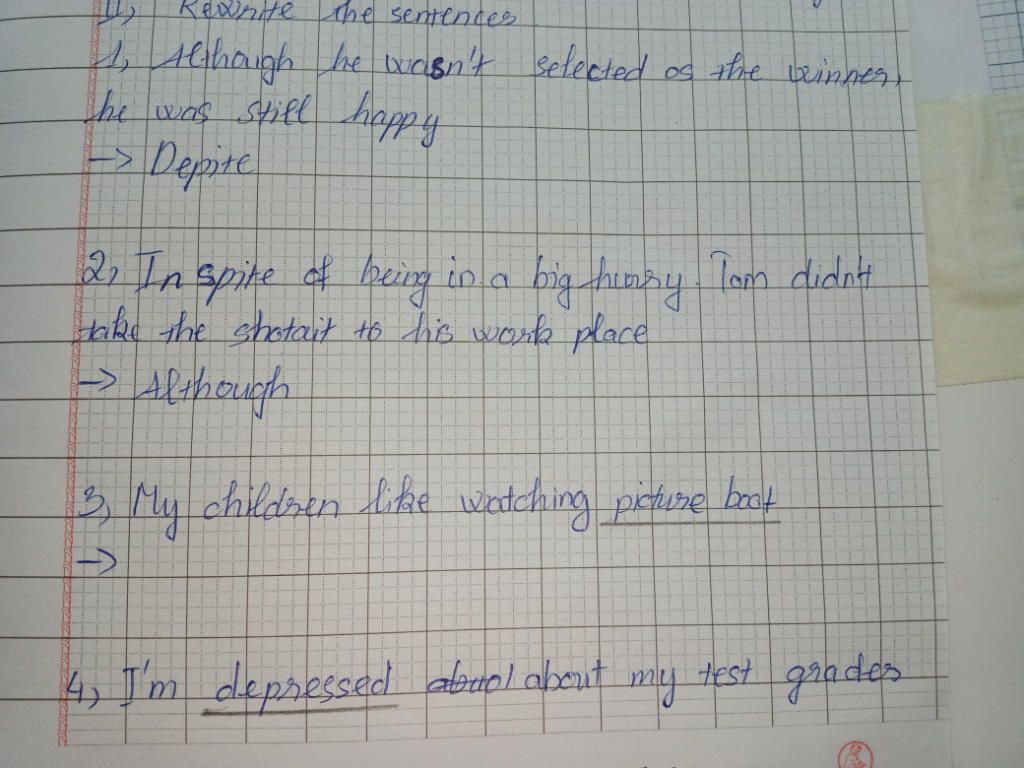 II, Rewrite the sentences
1, Although he wasn't selected as the winner,
he was still happy
-> Depite
2, In spite of being in a big hurry. Tom didn't
take the shotait to his work place
-> Although
3, My children like watching picture boot
->
4, I'm depressed about my test grades